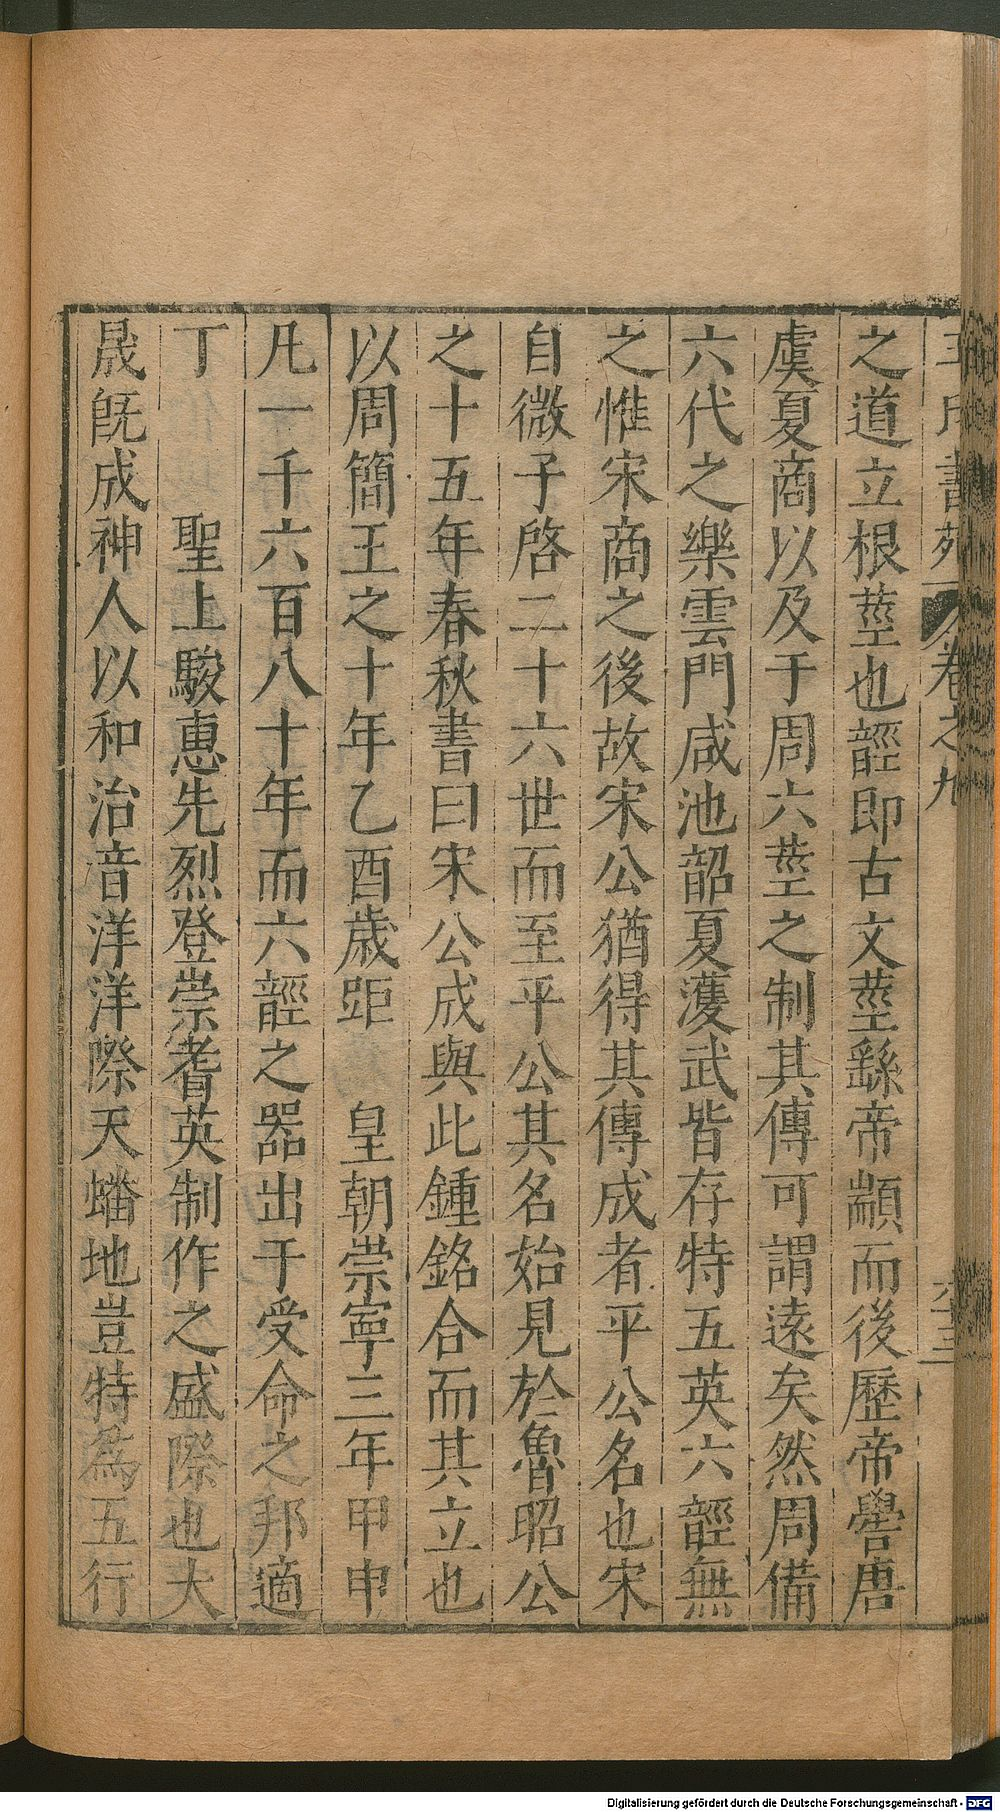 王氏書苑 卷之九
六十三
之道立根莖也䪫即古文莖繇帝顓而後歷帝嚳唐
虞夏商以及于周六莖之制其傳可謂遠矣然周備
六代之樂雲門咸池韶夏濩武皆存特五英六䪫無
之惟宋商之後故宋公猶得其傳成者平公名也宋
自微子啓二十六世而至平公其名始見於魯昭公
之十五年春秋書曰宋公成與此鍾銘合而其立也
以周簡王之十年乙酉歲距 皇朝崇寧三年甲申
凡一千六百八十年而六䪫之器出于受命之邦適
丁 聖上駿惠先烈登崇耆英制作之盛際也大
晟旣成神人以和治音洋洋際天蟠地豈特爲五行
Digitalisierung gefördert durch die Deutsche Forschungsgemeinschaft - DFG